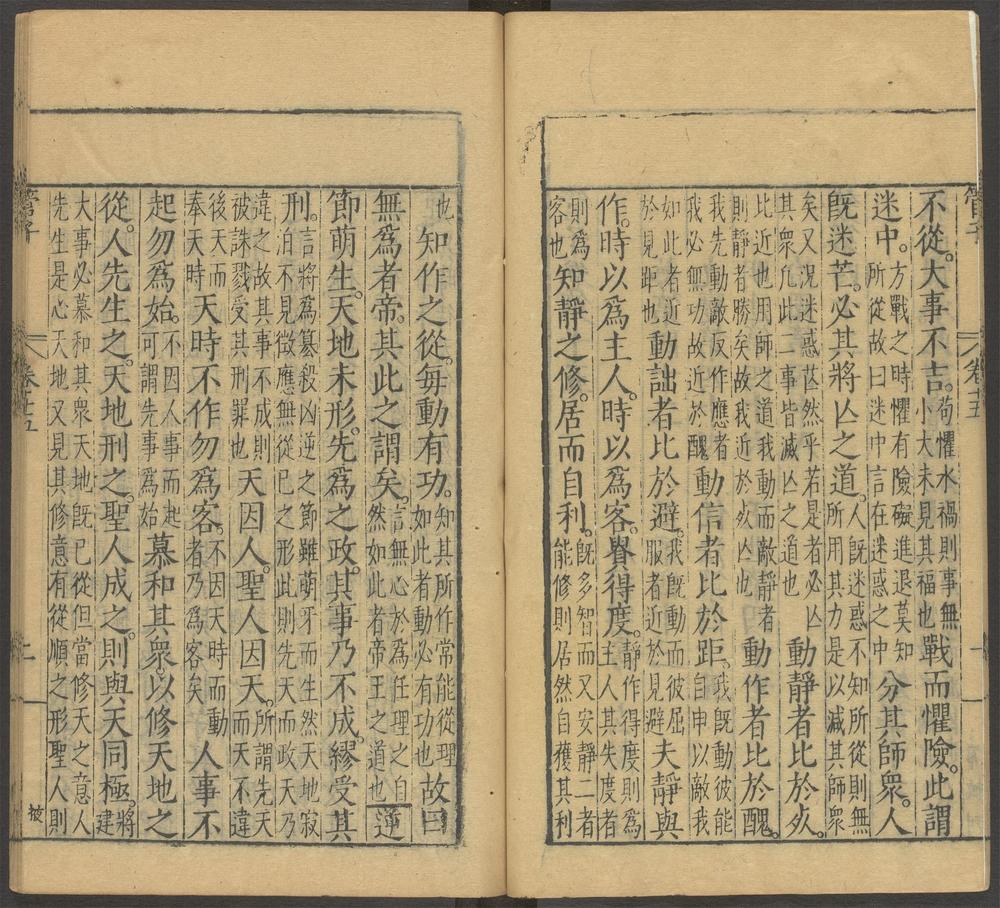 管子 卷十五 一
不從。大事不吉。苟懼水禍則事無
小大未見其福也戰而懼險。此謂
迷中。方戰之時懼有險礙進退莫知
所從故曰迷中言在迷惑之中分其師衆。人
旣迷芒。必其將亾之道。人旣迷惑不知所從則無
所用其力是以滅其師衆
矣又況迷惑芒然乎若是者必亾
其衆凢此二事皆滅亾之道也動靜者比於死。
比近也用師之道我動而敵靜者
則靜者勝矣故我近於死亾也動作者比於醜。
我先動敵反作應者
我必無功故近於醜動信者比於距。我旣動彼能
自申以敵我
如此者近
於見距也動詘者比於避。我旣動而彼屈
服者近於見避夫靜與
作。時以爲主人。時以爲客。貴得度。靜作得度則爲
主人其失度者
則爲
客也知靜之修。居而自利。旣多智而又安靜二者
能修則居然自獲其利
也知作之從。每動有功。知其所作常能從理
如此者動必有功也故曰
無爲者帝。其此之謂矣。言無心於爲任理之自
然如此者帝王之道也逆
節萌生。天地未形。先爲之政。其事乃不成繆受其
刑。言將爲簒殺凶逆之節雖萌牙而生然天地寂
泊不見徵應無從已之形此則先天而政天乃
違之故其事不成則
被誅戮受其刑罪也天因人。聖人因天。所謂先天
而天不違
後天而
奉天時天時不作勿爲客。不因天時而動
者乃爲客矣人事不
起勿爲始。不因人事而起
可謂先事爲始慕和其衆。以修天地之
從。人先生之。天地刑之。聖人成之。則與天同極。將
建
大事必慕和其衆天地旣已從但當修天之意人
先生是心天地又見其修意有從順之形聖人則
管子 卷十五 二 被